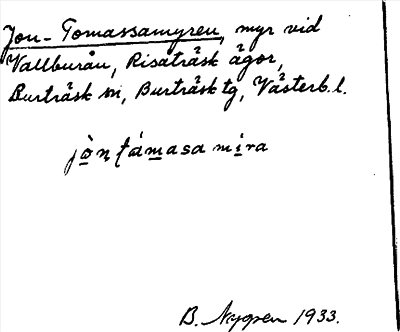 Jon-Tomassamyren, myr vid
Vallburån, Risåträsk ägor,
Burträsk sn, Burträsk tg, Västerb. l.
jòn támasa mira
B. Nygren 1933.